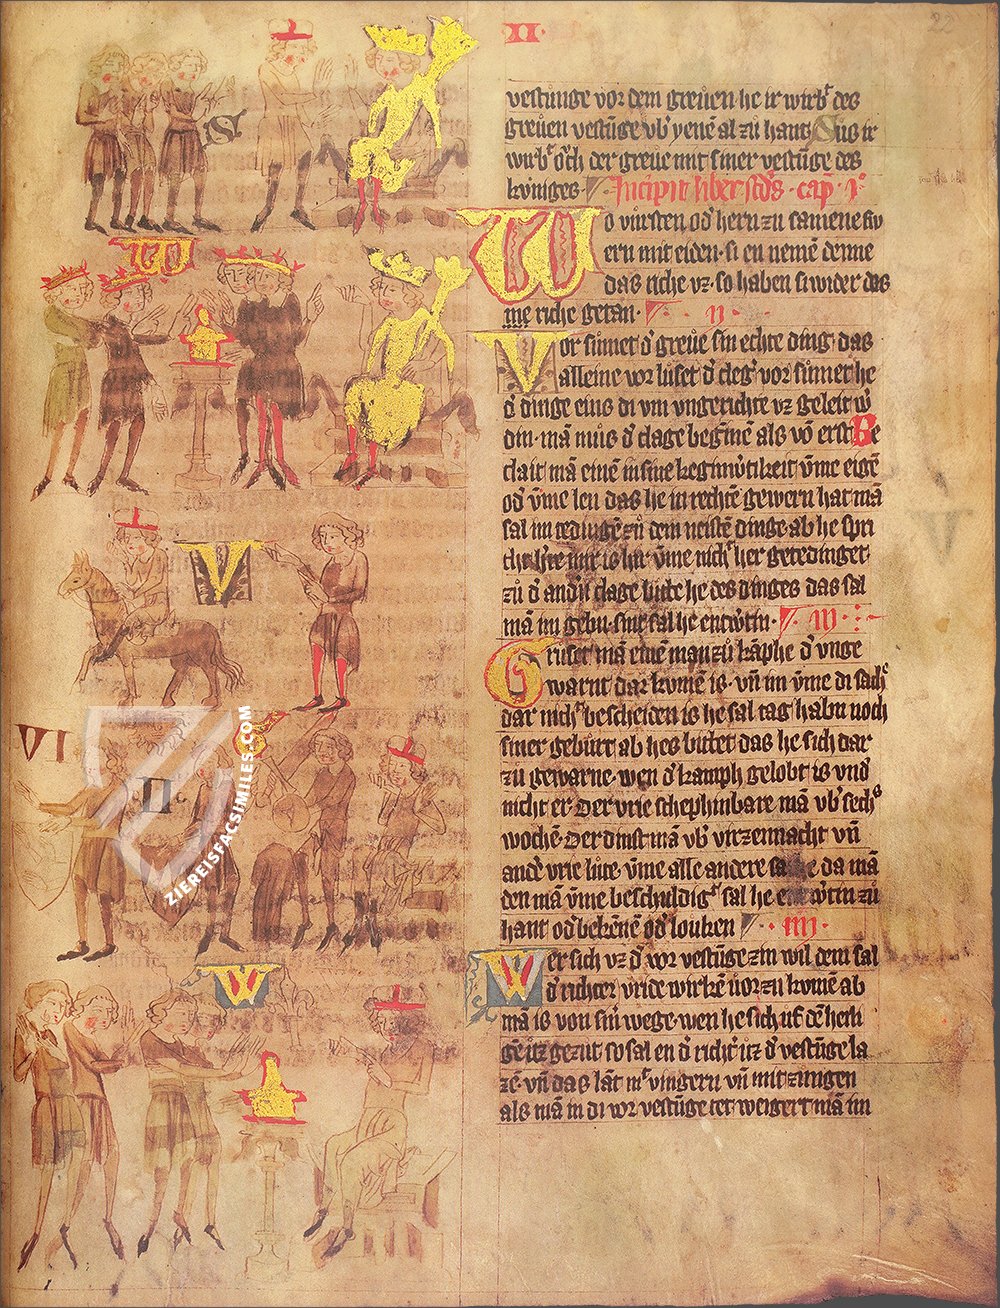 ·II·
22
vestunge vor dem greuen he ir wirbͭ des
greuen vestūge vb̾ yenē al zu hant Sus ir
wirbͭ ouch der greue mit siner vestūge des
koniges· Incipit liber scd̾s · cap̄ · I·
Wo vursten od̾ hern zu samene sw
ern mit eiden· si en nemē denne
das riche vz· so haben si wider das
riche getan· · II ·
Vor sumet d̾ greue sin echte ding· das
alleine vor luset d̾ cleg̾ vor sumet he
d̾ dinge eins di vm vngerichte vz geleit
din· mā mus d̾ clage beginnē als vō erst· Be
clait mā einē in sine keginw̾tikeit vm̄e eigē
od̾ vm̄e len das he in rechtē gewern hat mā
sal im tedingē zu dem neistē dinge· ab he spri
zu d̾ and̾n clage bitte he des dinges das sal
mā im gebn· sint sal he entw̾tin· · III ·
Gruset mā einē man zu kāphe d̾ vnge
warnt dar komē is· vn̄ im vm̄e di sachͤ
dar nichͭ bescheiden is he sal tag habn noch
siner geburt ab hes bittet das he sich dar
zu gewarne· wen d̾ kamph gelobt is vnd
nicht er· Der vrie schephinbare mā vb̾ sechs
wochē· Der dinstmā vb̾ virzennacht vn̄
and̾ vrie lute· vm̄e alle andere da mā
den mā vm̄e beschuldigͭ sal he zu
hant od̾ bekēne od̾ louken · IIII ·
Wer sich vz d̾ vor vestūge zin wil dem sal
d̾ richter vride wirkē vor zu komē ab
mā is von sin̄ wege· wen he sich uf dē heili
gē itz gezut so sal en d̾ richt̾ itz d̾ vestūge la
zē vn̄ das lāt mͭ vingern vn̄ mit zungen
als mā in di vor vestūge tet weigert mā im
S
W
V
VI
G
II
W
ZIEREISFACSIMILES.COM